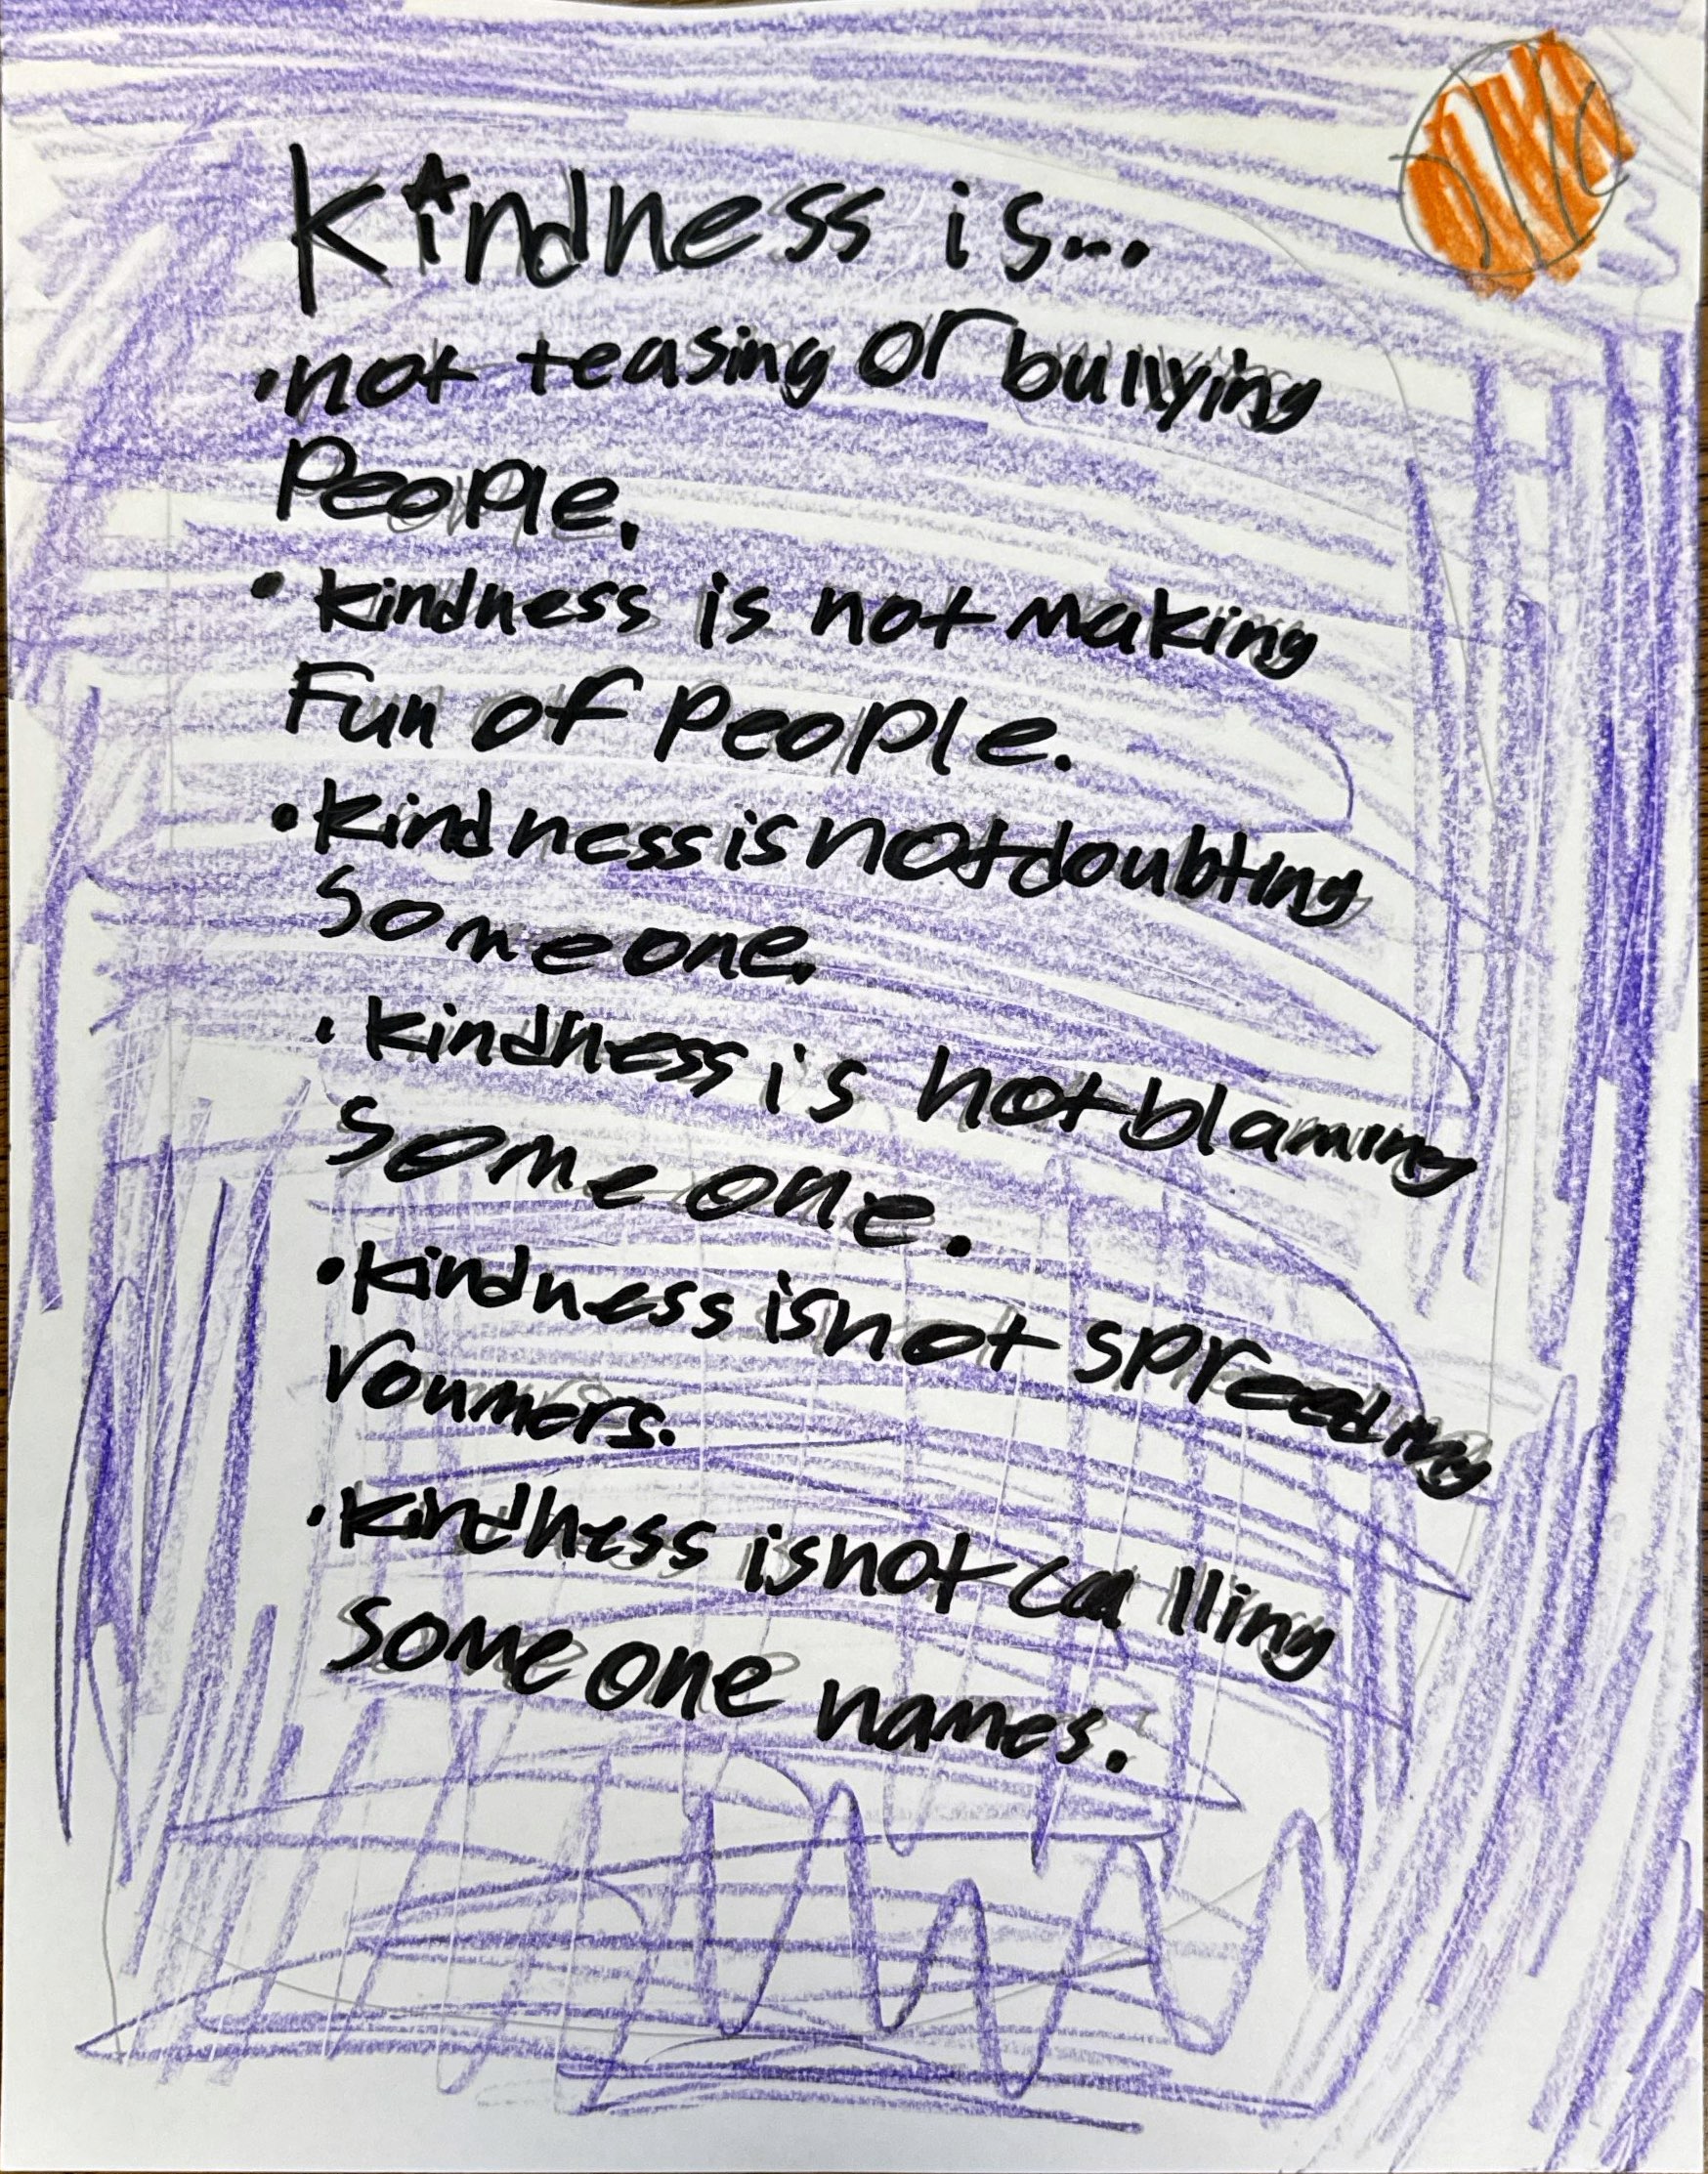 Kindness is...
•not teasing or bullying
People.
• kindness is not making
Fun of People.
•kindness is not doubting
Someone.
•kindness is not blaming
Someone.
•kindness is not spreeding
roumers.
•kindness is not calling
someone names.